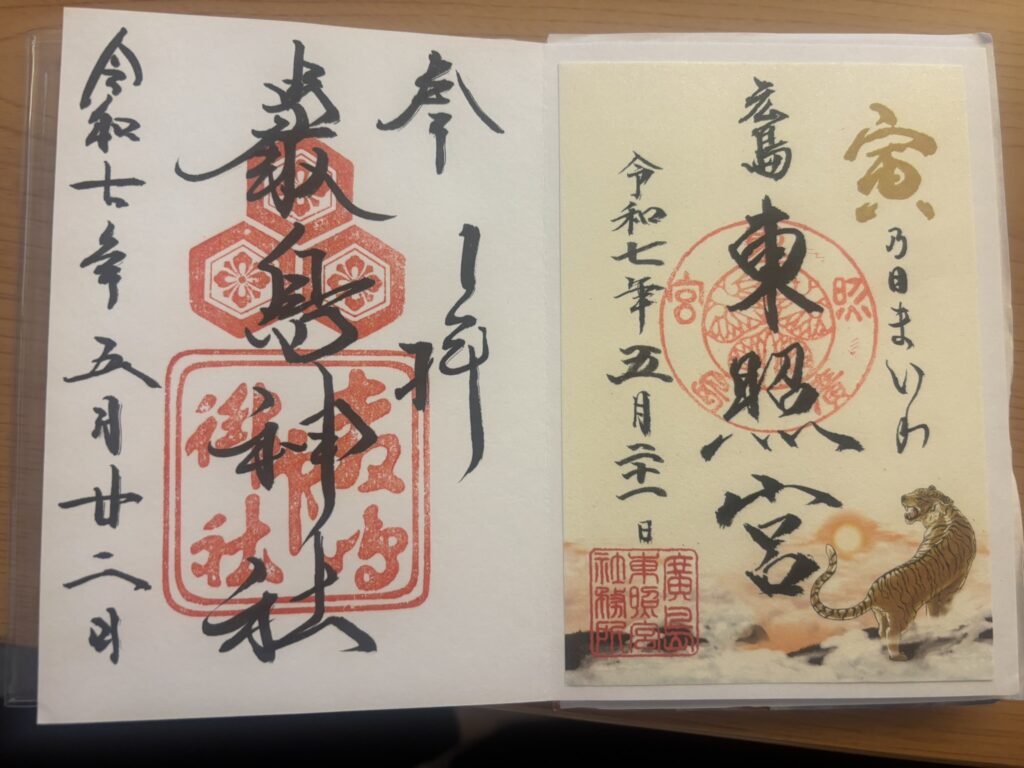 寅乃日まいり
広島 東照宮
令和七年五月二十一日
廣島
東照宮
社務所
奉拝
嚴島神社
令和七年五月廿二日